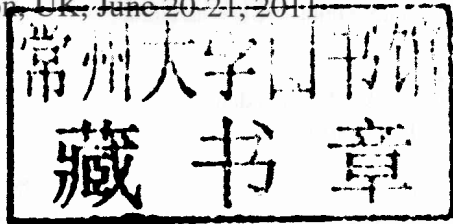 on, UK, June 20-21, 2011
常州大学图书馆
藏书章